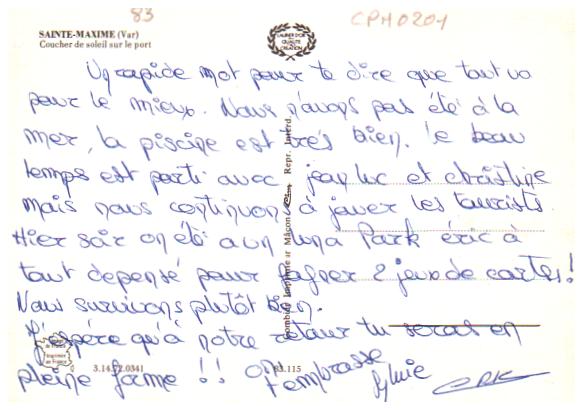 83
CPM0201
SAINTE-MAXIME (Var)
Coucher de soleil sur le port
LAURIER D'OR
QUALITÉ
CRÉATION
Un rapide mot pour te dire que tout va
pour le mieux. Nous n'avons pas été à la
mer, la piscine est très bien. le beau
temps est parti avec jean luc et christine
mais nous continuons à jouer les touristes
Hier soir on été a un luna Park éric à
tout depensé pour gagner 2 jeux de cartes !
Nous survivons plutôt bien.
J'espère qu'à notre retour tu seras en
pleine forme !! on
t'embrasse
Sylvie
Combier Imprimeur Mâcon Repr. Interd.
Imprimé
en France
3.14.72.0341
83.115